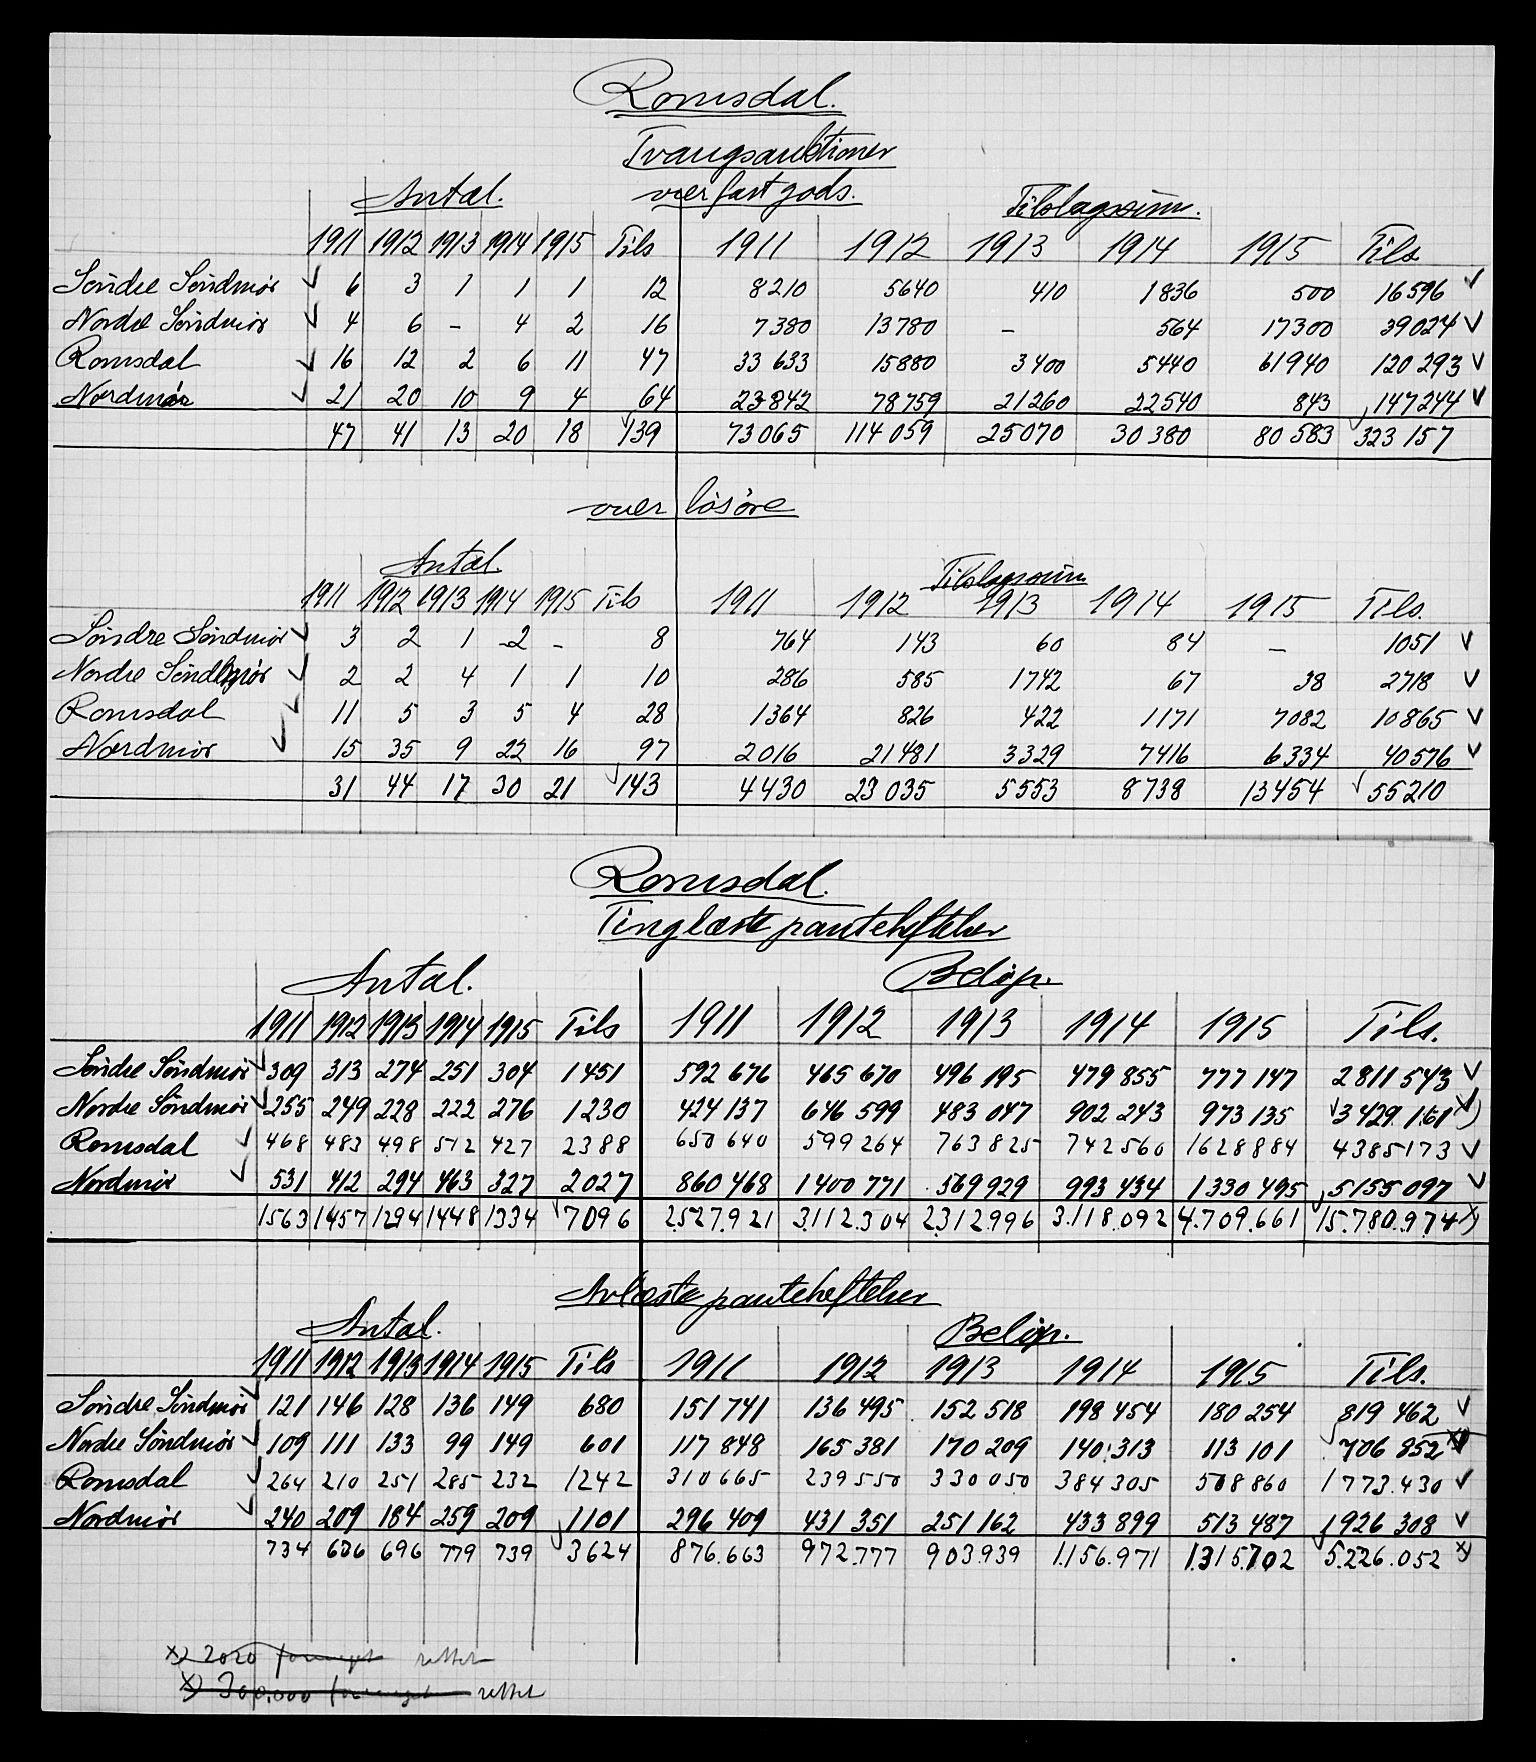 Romsdal.
Tvangsauktioner
Antal. over fast gods. Tilslagssum.
1911 1912 1913 1914 1915 Tils 1911 1912 1913 1914 1915 Tils.
Søndre Søndmør ✓ 6 3 1 1 1 12 8210 5640 410 1836 500 16596 ✓
Nordre Søndmør ✓ 4 6 – 4 2 16 7380 13780 – 564 17300 39024 ✓
Romsdal ✓ 16 12 2 6 11 47 33 633 15880 3400 5440 61940 120 293 ✓
Nordmør ✓ 21 20 10 9 4 64 23842 78759 21260 22540 843 147244 ✓
47 41 13 20 18 ✓ 139 73065 114 059 25070 30 380 80 583 ✓ 323 157
over løsøre
Antal. Tilslagssum
1911 1912 1913 1914 1915 Tils 1911 1912 1913 1914 1915 Tils.
Søndre Søndmør ✓ 3 2 1 2 – 8 764 143 60 84 – 1051 ✓
Nordre Søndmør ✓ 2 2 4 1 1 10 286 585 1742 67 38 2718 ✓
Romsdal ✓ 11 5 3 5 4 28 1364 826 422 1171 7082 10865 ✓
Nordmør ✓ 15 35 9 22 16 97 2016 21481 3329 7416 6334 40576 ✓
31 44 17 30 21 ✓ 143 4430 23 035 5553 8738 13454 ✓ 55210
Romsdal.
Tinglæste panteheftelser
Antal. Beløp.
1911 1912 1913 1914 1915 Tils 1911 1912 1913 1914 1915 Tils.
Søndre Søndmør ✓ 309 313 274 251 304 1451 592 676 465 670 496 195 479 855 777 147 2811 543 ✓
Nordre Søndmør ✓ 255 249 228 222 276 1230 424 137 646 599 483 047 902 243 973 135 ✓ 3 429 161 x)
Romsdal ✓ 468 483 498 512 427 2388 650 640 599 264 763 825 742 560 1628 884 4385173 ✓
Nordmør ✓ 531 412 294 463 327 2027 860 468 1400 771 569 929 993 434 1330 495 5155 097 ✓
1563 1457 1294 1448 1334 ✓ 7096 2527.921 3.112.304 2312.996 3.118.092 4.709.661 ✓ 15.780.974 x)
Avlæste panteheftelser
Antal. Beløp.
1911 1912 1913 1914 1915 Tils 1911 1912 1913 1914 1915 Tils.
Søndre Søndmør ✓ 121 146 128 136 149 680 151 741 136 495 152 518 198 454 180 254 819 462 ✓
Nordre Søndmør ✓ 109 111 133 99 149 601 117 848 165 381 170 209 140 313 113 101 ✓ 706 852 x)
Romsdal ✓ 264 210 251 285 232 1242 310 665 239 550 330 050 384 305 508 860 1 773.430 ✓
Nordmør ✓ 240 209 184 259 209 1101 296 409 431 351 251 162 433 899 513 487 1926 308 ✓
734 676 696 779 739 ✓ 3624 876.663 972.777 903.939 1.156.971 1.315.702 ✓ 5.226.052 x)
x) 2020 rettet
x) 300,000 rettet